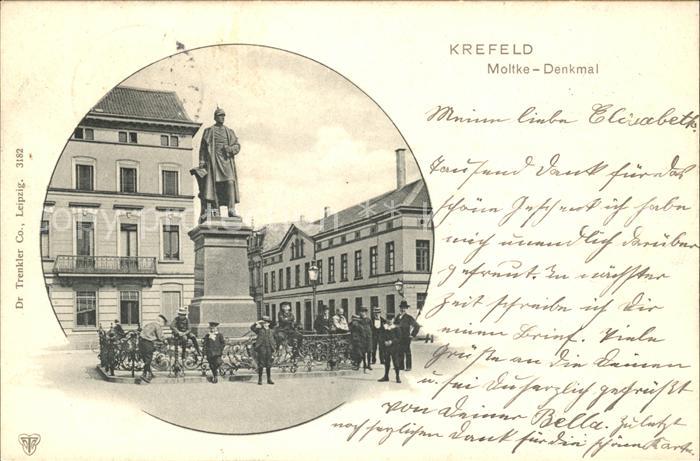 KREFELD
Moltke-Denkmal
Dr Trenkler Co., Leipzig. 3182
Meine liebe Elisabeth,
Tausend Dank für das
schöne Geschenk ich habe
mich unendlich darüber
gefreut. In nächster
Zeit schreibe ich Dir
einen Brief. Viele
Grüße an die Deinen
u. sei Du herzlich gegrüßt
von Deiner Bella. Zuletzt
noch herzlichen Dank für die schöne Karte.